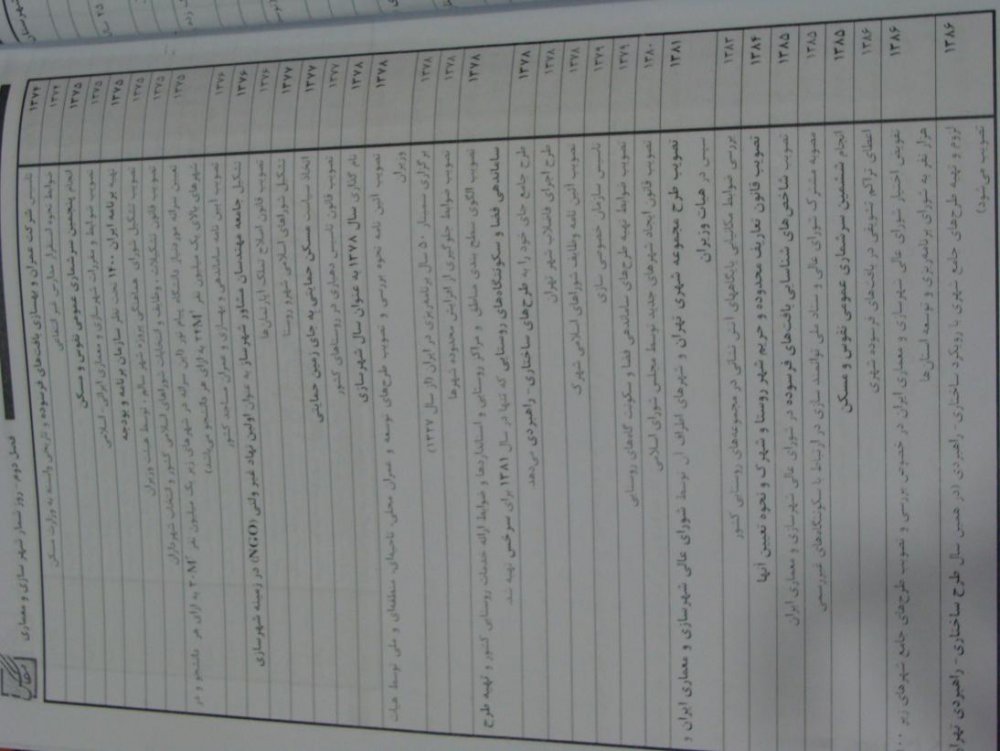 فصل دوم - روز شمار شهر سازی و معماری
۱۳۷۴ تاسیس شرکت عمران و بهسازی بافت‌های فرسوده و تاریخی وابسته به وزارت مسکن
۱۳۷۴ ضوابط نحوه استقرار مدارس غیر انتفاعی
۱۳۷۵ انجام پنجمین سرشماری عمومی نفوس و مسکن
۱۳۷۵ تصویب ضوابط و مقررات شهرسازی و معماری ایرانی - اسلامی
۱۳۷۵ تهیه برنامه ایران ۱۴۰۰ تحت نظر سازمان برنامه و بودجه
۱۳۷۵ تصویب تشکیل شورای هماهنگی پروژه شهر سالم، توسط هیئت وزیران
۱۳۷۵ تصویب قانون تشکیلات، وظایف و انتخابات شوراهای اسلامی کشور و انتخاب شهرداران
۱۳۷۵ تعیین سرانه مورد نیاز دانشگاه پیام نور (این سرانه در شهرهای زیر یک میلیون نفر ۲۰M² به ازای هر دانشجو و در
شهرهای بالای یک میلیون نفر ۲۲M² به ازای هر دانشجو می‌باشد)
۱۳۷۶ تصویب آیین نامه ساماندهی و بهسازی و عمران مساجد کشور
۱۳۷۶ تشکیل جامعه مهندسان مشاور شهرساز به عنوان اولین نهاد غیر دولتی (NGO) در زمینه شهرسازی
۱۳۷۶ تصویب قانون اصلاح تملک آپارتمان‌ها
۱۳۷۷ تشکیل شوراهای اسلامی شهر و روستا
۱۳۷۷ اتخاذ سیاست مسکن حمایتی به جای زمین حمایتی
۱۳۷۷ تصویب قانون تاسیس دهیاری در روستاهای کشور
۱۳۷۸ نام گذاری سال ۱۳۷۸ به عنوان سال شهرسازی
۱۳۷۸ تصویب آئین نامه نحوه بررسی و تصویب طرح‌های توسعه و عمران محلی، ناحیه‌ای، منطقه‌ای و ملی توسط هیات
وزیران
۱۳۷۸ برگزاری سمینار ۵۰ سال برنامه‌ریزی در ایران (از سال ۱۳۲۷)
۱۳۷۸ تصویب ضوابط جلوگیری از افزایش محدوده شهرها
۱۳۷۸ تصویب الگوی سطح بندی مناطق و مراکز روستایی و استانداردها و ضوابط ارائه خدمات روستایی کشور و تهیه طرح
ساماندهی فضا و سکونتگاه‌های روستایی که تنها در سال ۱۳۸۱ برای سرخس تهیه شد.
۱۳۷۸ طرح جامع جای خود را به طرح‌های ساختاری - راهبردی می‌دهد
۱۳۷۸ طرح اجرای فاضلاب شهر تهران
۱۳۷۸ تصویب آئین نامه وظایف شوراهای اسلامی شهرک
۱۳۷۹ تاسیس سازمان خصوصی سازی
۱۳۷۹ تصویب ضوابط تهیه طرح‌های ساماندهی فضا و سکونت گاه‌های روستایی
۱۳۸۰ تصویب قانون ایجاد شهرهای جدید توسط مجلس شورای اسلامی
۱۳۸۱ تصویب طرح مجموعه شهری تهران و شهرهای اطراف آن توسط شورای عالی شهرسازی و معماری ایران و
سپس در هیات وزیران
۱۳۸۳ بررسی ضوابط مکانیابی پایگاههای آتش نشانی در مجموعه‌های روستایی کشور
۱۳۸۴ تصویب قانون تعاریف محدوده و حریم شهر روستا و شهرک و نحوه تعیین آنها
۱۳۸۵ تصویب شاخص‌های شناسایی بافت‌های فرسوده در شورای عالی شهرسازی و معماری ایران
۱۳۸۵ مصوبه مشترک شورای عالی و ستاد ملی توانمند سازی در ارتباط با سکونتگاه‌های غیررسمی
۱۳۸۵ انجام ششمین سرشماری عمومی نفوس و مسکن
۱۳۸۶ اعطای تراکم تشویقی در بافت‌های فرسوده شهری
۱۳۸۶ تفویض اختیار شورای عالی شهرسازی و معماری ایران در خصوص بررسی و تصویب طرح‌های جامع شهرهای زیر
هزار نفر به شورای برنامه‌ریزی و توسعه استان‌ها
۱۳۸۶ لزوم و تهیه طرح‌های جامع شهری با رویکرد ساختاری - راهبردی (در همین سال طرح ساختاری - راهبردی
تصویب می‌شود)